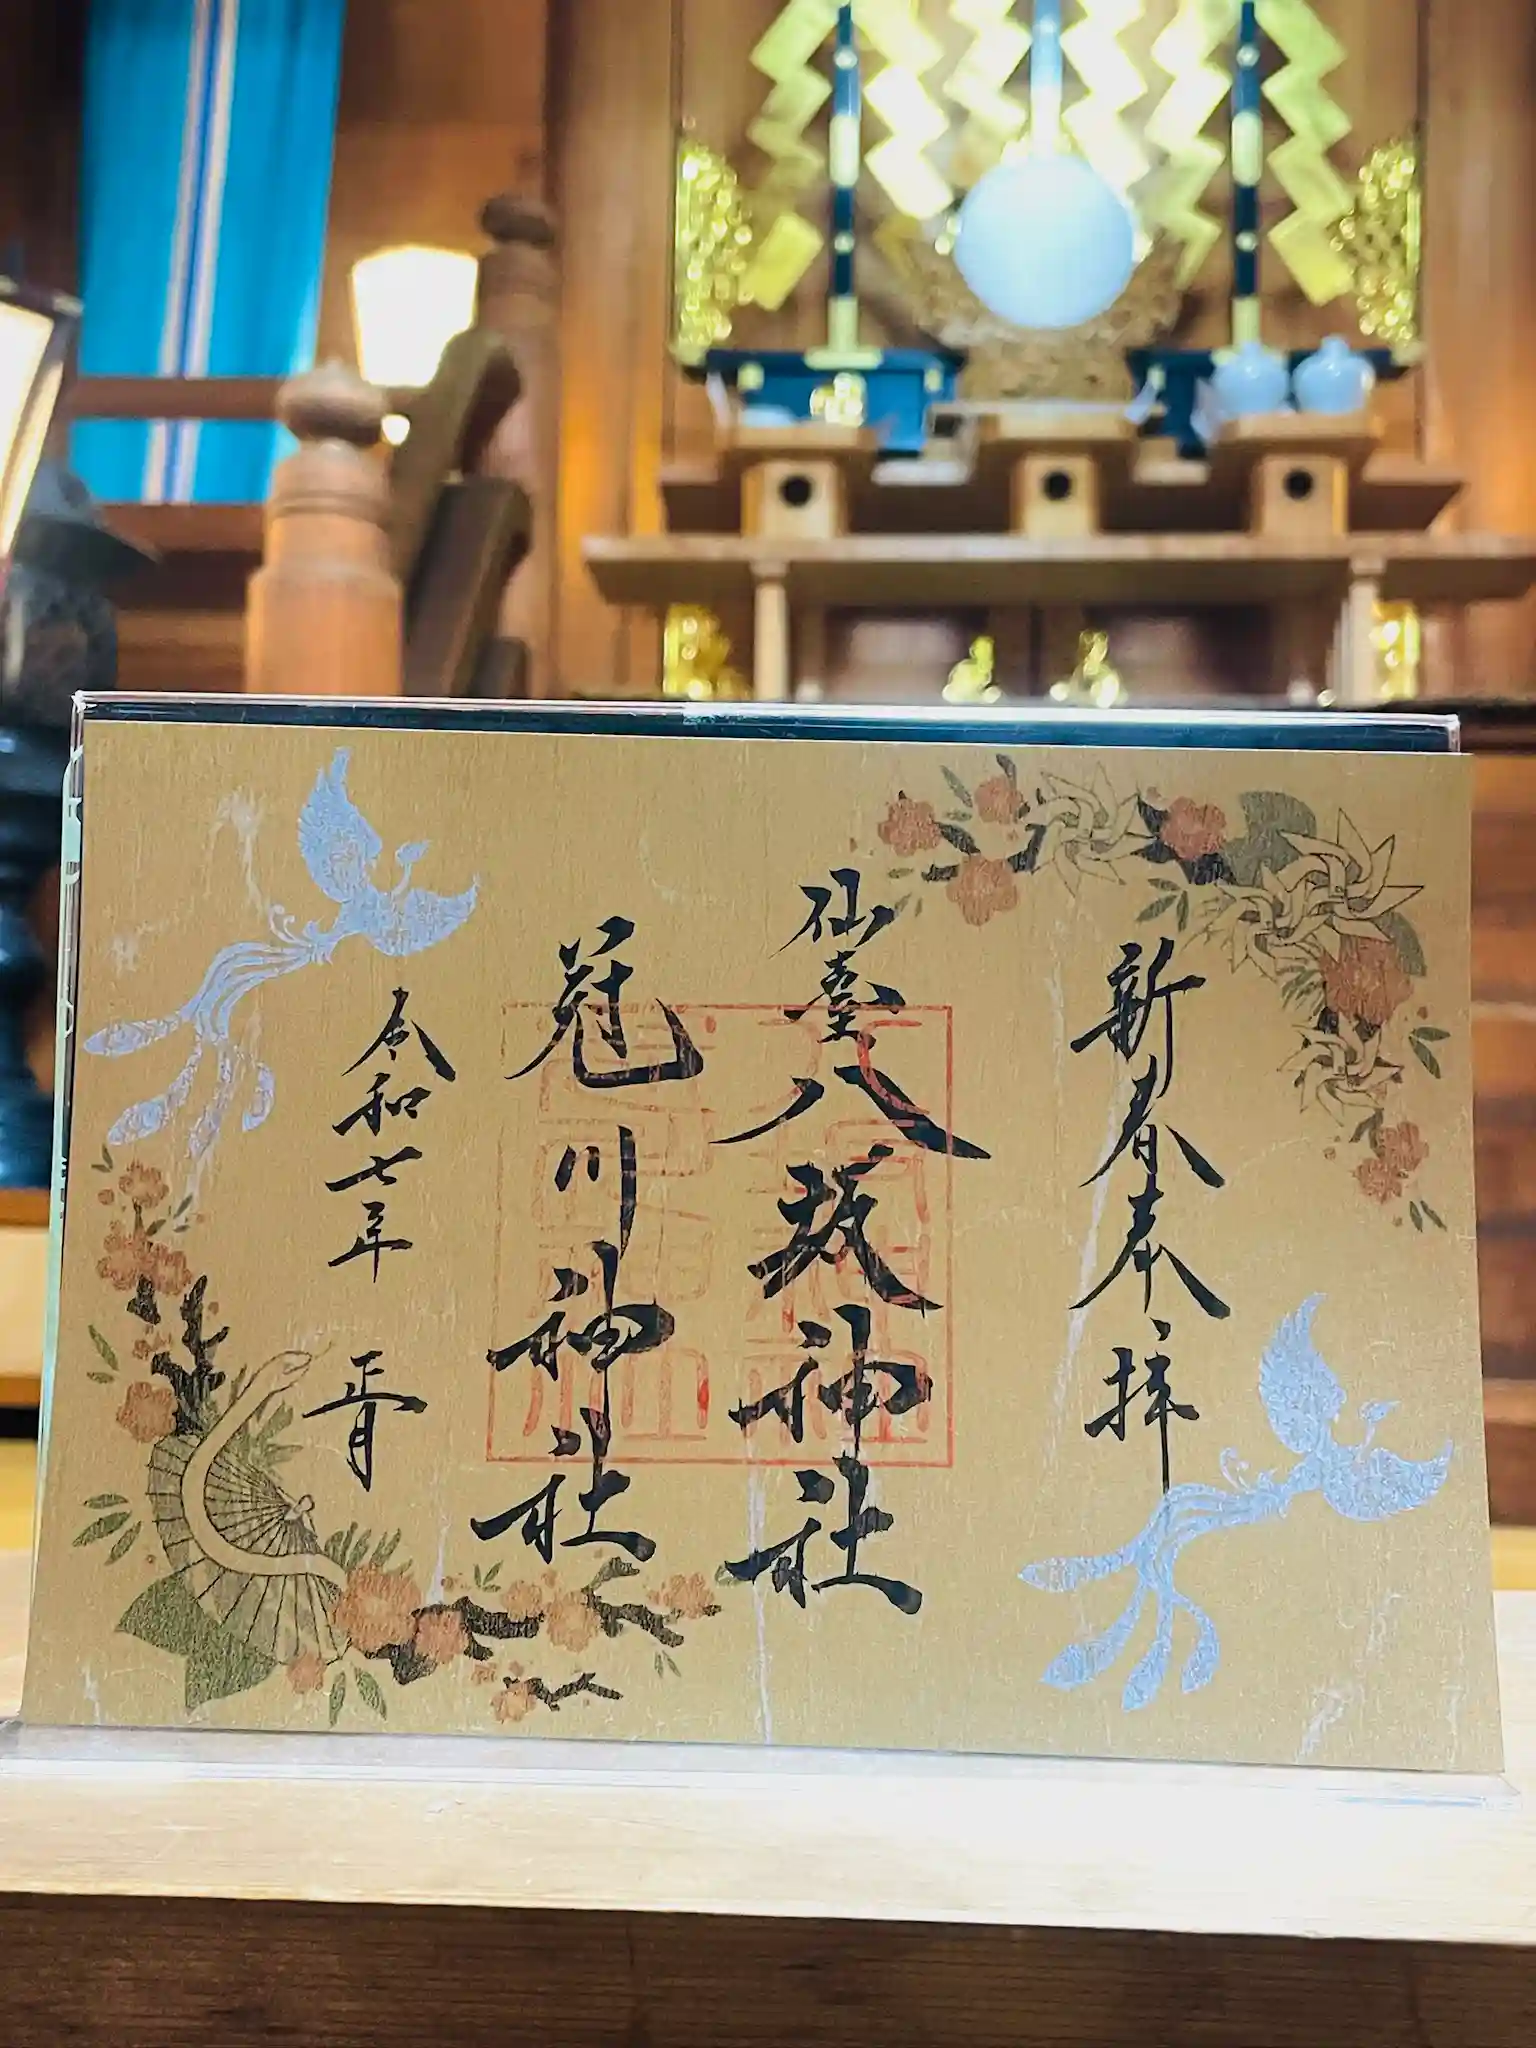 新春奉拝
仙臺八坂神社
冠川神社
令和七年 正月